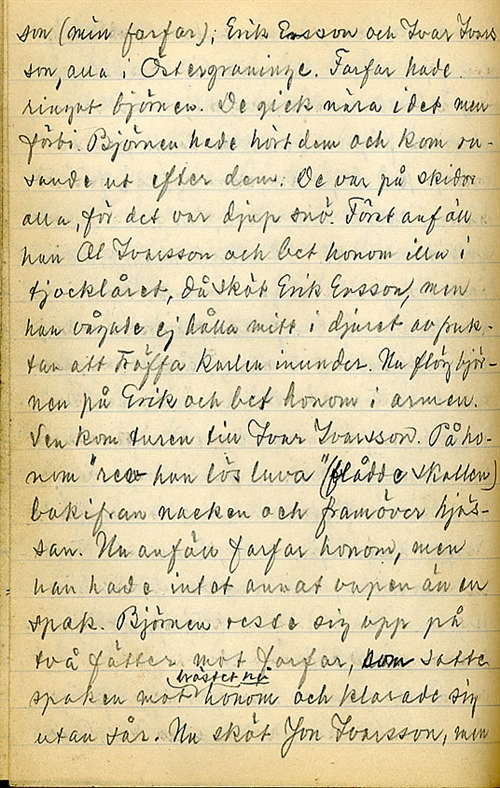 son (min farfar), Erik Ersson och Ivar Ivars
son, alla i Östergraninge. Farfar hade
ringat björnen. De gick nära idet men
förbi. Björnen hade hört dem och kom ru-
sande ut efter dem. De var på skidor
alla, för det var djup snö. Först anföll
han Ol Ivarsson och bet honom illa i
tjocklåret, då sköt Erik Ersson, men
han vågade ej hålla mitt i djuret av fruk-
tan att träffa karlen inunder. Nu flög björ-
nen på Erik och bet honom i armen.
Sen kom turen till Ivar Ivarsson. På ho-
nom "rev han lös luva" (flådde skallen)
bakifrån nacken och framöver hjäs-
san. Nu anföll farfar honom, men
han hade intet annat vapen än en
spak. Björnen reste sig upp på
två fötter mot farfar, som satte
bröstet på
spaken mot honom och klarade sig
utan sår. Nu sköt Jon Ivarsson, men